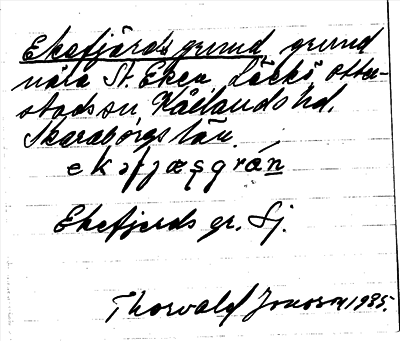 Ekefjärdsgrund grund
nära St. Eken, Läckö, Otter-
stads sn, Kållands hd.
Skaraborgs län.
ekəfjæșgrån
Ekefjerds gr. Sj.
Thorvald Jonsson 1935.